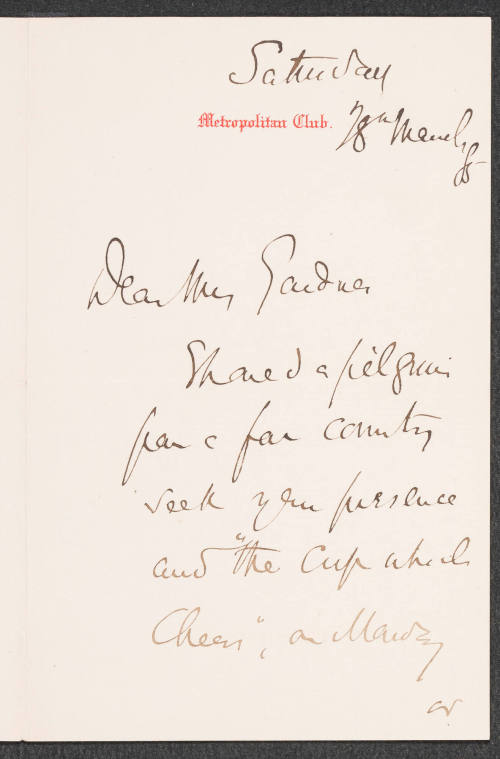 Saturday
Metropolitan Club.
28th March 85
Dear Mrs Gardner
Should a pilgrim
from a far country
seek your presence
and "the Cup which
Cheers", on Monday
or